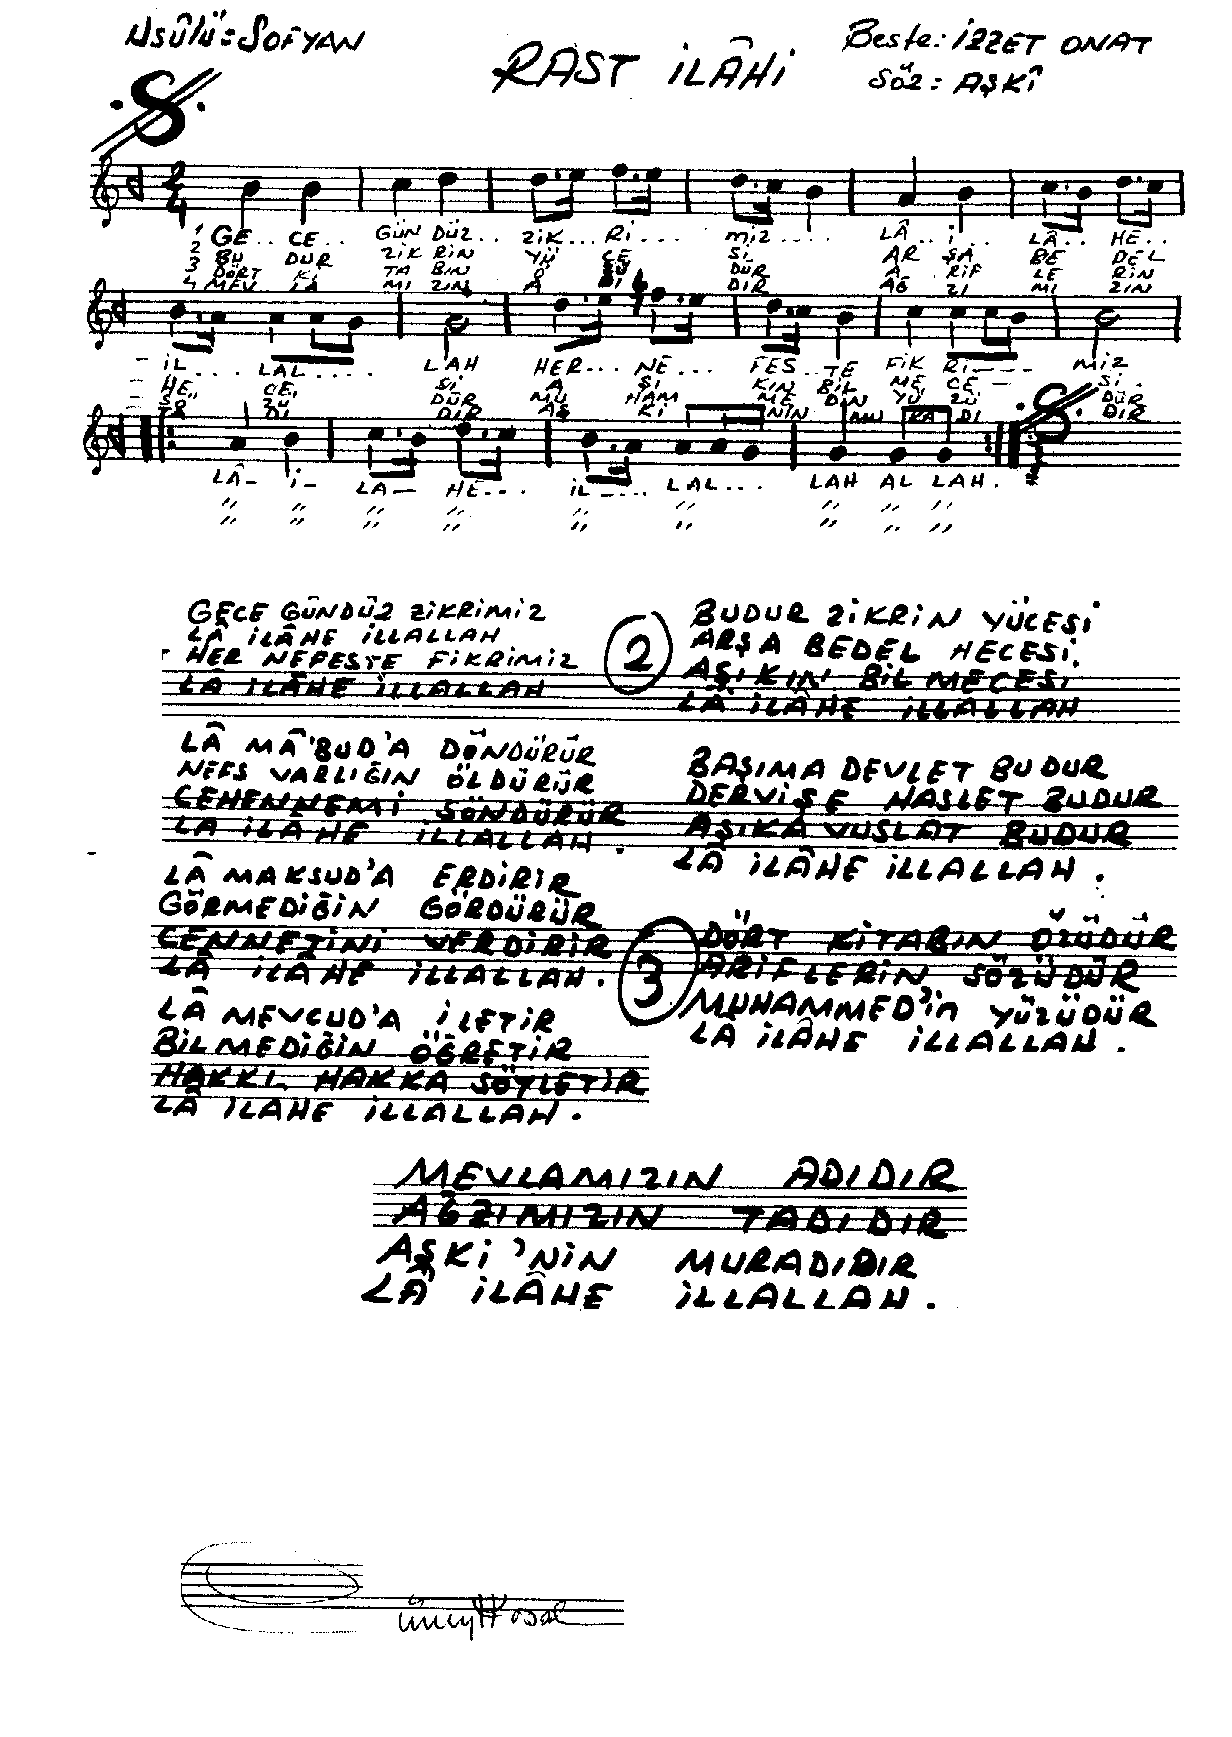 Usûlü: SOFYAN
RAST İLÂHİ
Beste: İZZET ONAT
Söz: AŞKÎ
1 GE.. CE.. GÜN DÜZ.. ZİK... Rİ... MİZ.... LÂ.. İ.. LÂ.. HE..
2 BU DUR ZİK RİN YÜ CE Sİ AR ŞA BE DEL
3 DÖRT Kİ TA BIN Ö ZÜ DÜR A RİF LE RİN
4 MEV LA MI ZIN A DI DIR AĞ ZI MI ZIN
İL.... LAL.... LAH HER... NE... FES..TE FİK Rİ--- MİZ
HE, CE, Sİ, A ŞI KIN BİL ME CE Sİ.
SÖ ZÜ DÜR MU HAM ME DİN YÜ ZÜ DÜR
TA DI DIR AŞ Kİ NİN MU RA DI DIR
LÂ- İ- LA- HE... İL-... LAL... LAH AL LAH.
" " " " " " " " "
" " " " " " " " "
GECE GÜNDÜZ ZİKRİMİZ
LÂ İLÂHE İLLALLAH
HER NEFESTE FİKRİMİZ
LÂ İLÂHE İLLALLAH
LÂ MÂ'BUD'A DÖNDÜRÜR
NEFS VARLIĞIN ÖLDÜRÜR
CEHENNEMİ SÖNDÜRÜR
LA İLÂHE İLLALLAH.
LÂ MAKSUD'A ERDİRİR
GÖRMEDİĞİN GÖRDÜRÜR
CENNETİNİ VERDİRİR
LÂ İLÂHE İLLALLAH.
LÂ MEVCUD'A İLETİR
BİLMEDİĞİN ÖĞRETİR
HAKKI HAKKA SÖYLETİR
LÂ İLAHE İLLALLAH.
2
BUDUR ZİKRİN YÜCESİ
ARŞA BEDEL HECESİ.
AŞIKIN BİLMECESİ
LÂ İLÂHE İLLALLAH
BAŞIMA DEVLET BUDUR
DERVİŞE HASLET BUDUR
AŞIKA VUSLAT BUDUR
LÂ İLÂHE İLLALLAH.
3
DÖRT KİTABIN ÖZÜDÜR
ARİFLERİN SÖZÜDÜR
MUHAMMED'in YÜZÜDÜR
LÂ İLÂHE İLLALLAH.
MEVLAMIZIN ADIDIR
AĞZIMIZIN TADIDIR
AŞKİ'NİN MURADIDIR
LÂ İLÂHE İLLALLAH.